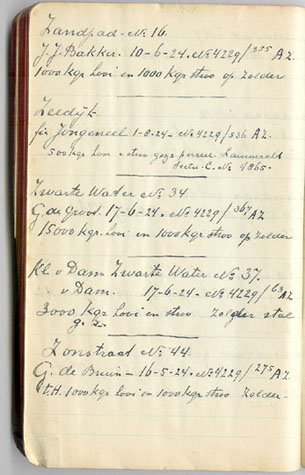 Zandpad - No 16.
J. J. Bakker. 10-6-24. No 4229/355 A.Z.
1000 kgr hooi en 1000 kgr stroo op zolder
Zeedijk.
fa Jongeneel 1-8-24. No 4229/536 A.Z.
500 kgr hooi en stroo perceel
Sectie C. No 4865.
Zwarte Water No 34.
G de Groot. 17-6-24. No 4229/367 A.Z.
15000 kgr. hooi en 1000 kgr stroo op zolder
Kl. v Dam Zwarte Water No 37.
v Dam. 17-6-24. No 4229/ A.Z.
3000 kgr hooi en stroo zolder stal
g. z.
Zonstraat No 44.
G. de Bruin - 16-5-24. No 4229/275 A.Z.
t.H. 1000 kgr hooi en 1000 kgr stroo zolder.